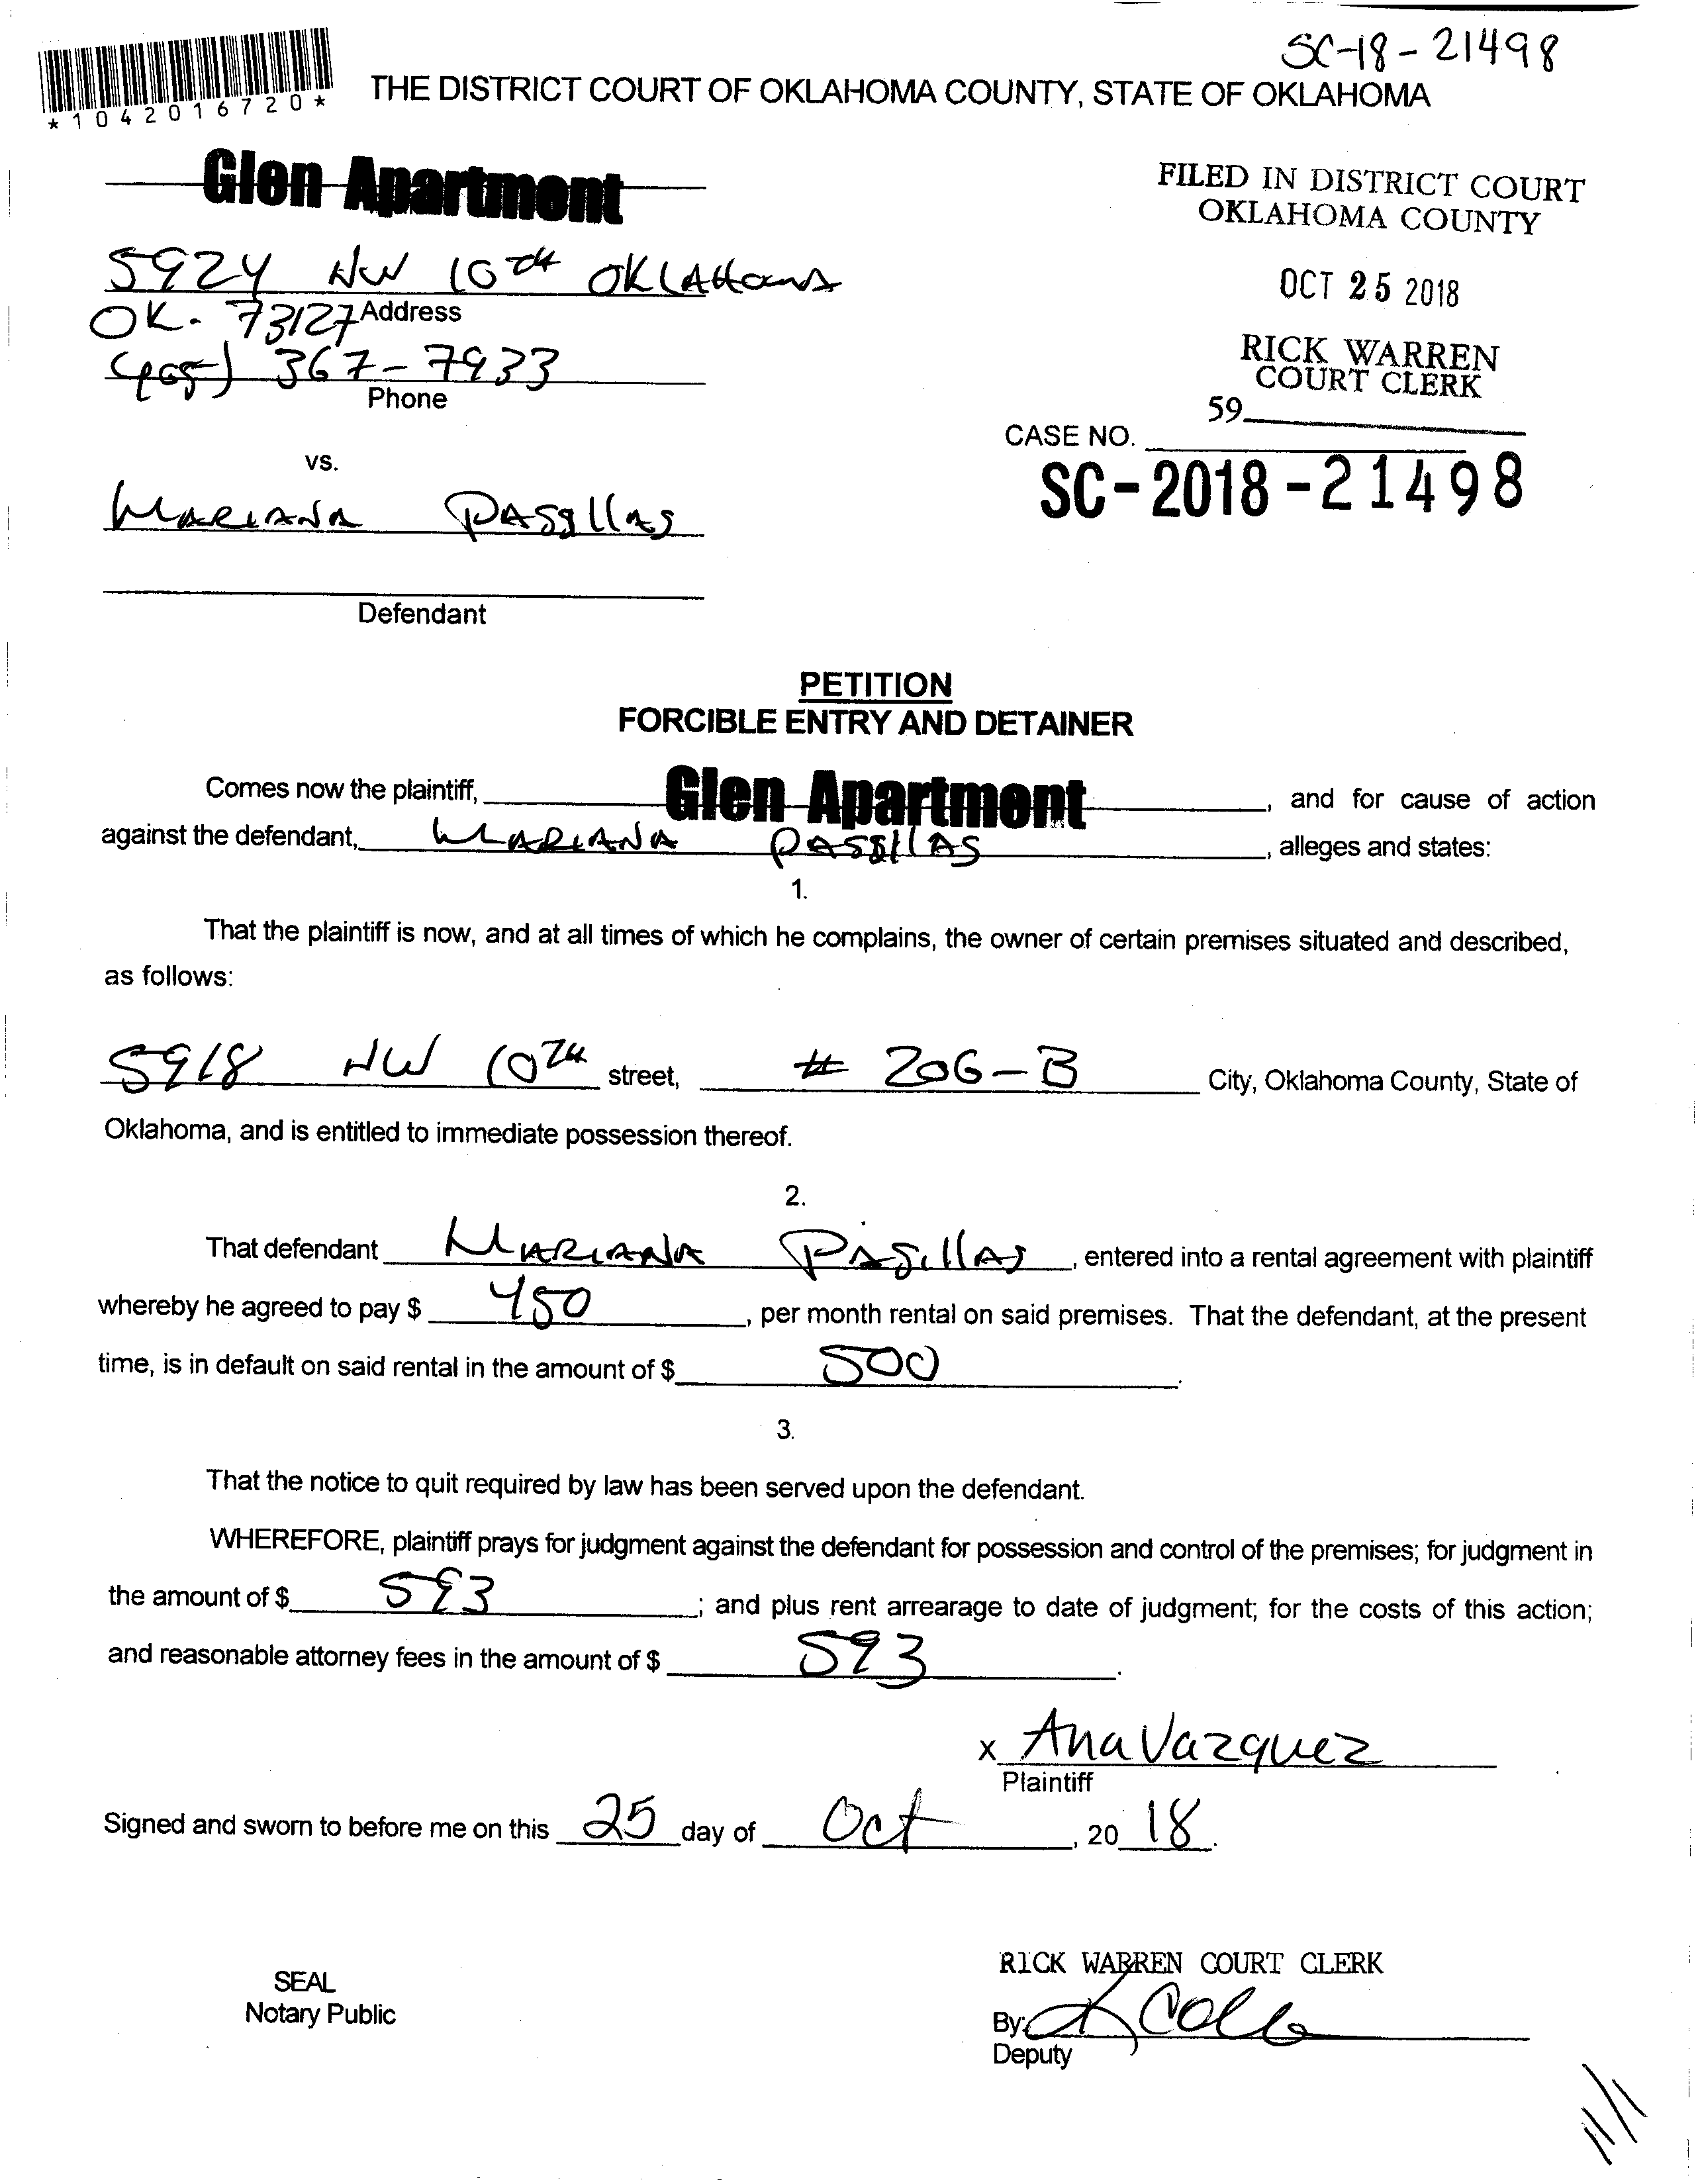 SC-18-21498
*1042016720*
THE DISTRICT COURT OF OKLAHOMA COUNTY, STATE OF OKLAHOMA
Glen Apartment
FILED IN DISTRICT COURT
OKLAHOMA COUNTY
5924 NW 10TH OKLAHOMA
OK. 73127 Address
OCT 25 2018
(405) 367-7933
Phone
RICK WARREN
COURT CLERK
59
CASE NO.
SC-2018-21498
vs.
MARIANA PASILLAS
Defendant
PETITION
FORCIBLE ENTRY AND DETAINER
Comes now the plaintiff, Glen Apartment, and for cause of action
against the defendant, MARIANA PASILLAS, alleges and states:
1.
That the plaintiff is now, and at all times of which he complains, the owner of certain premises situated and described,
as follows:
5918 NW 10TH street, # 206-B City, Oklahoma County, State of
Oklahoma, and is entitled to immediate possession thereof.
2.
That defendant MARIANA PASillAS, entered into a rental agreement with plaintiff
whereby he agreed to pay $ 450, per month rental on said premises. That the defendant, at the present
time, is in default on said rental in the amount of $ 500.
3.
That the notice to quit required by law has been served upon the defendant.
WHEREFORE, plaintiff prays for judgment against the defendant for possession and control of the premises; for judgment in
the amount of $ 593; and plus rent arrearage to date of judgment; for the costs of this action;
and reasonable attorney fees in the amount of $ 593.
x Ana Vazquez
Plaintiff
Signed and sworn to before me on this 25 day of Oct, 20 18.
SEAL
Notary Public
RICK WARREN COURT CLERK
By:
Deputy
11/1